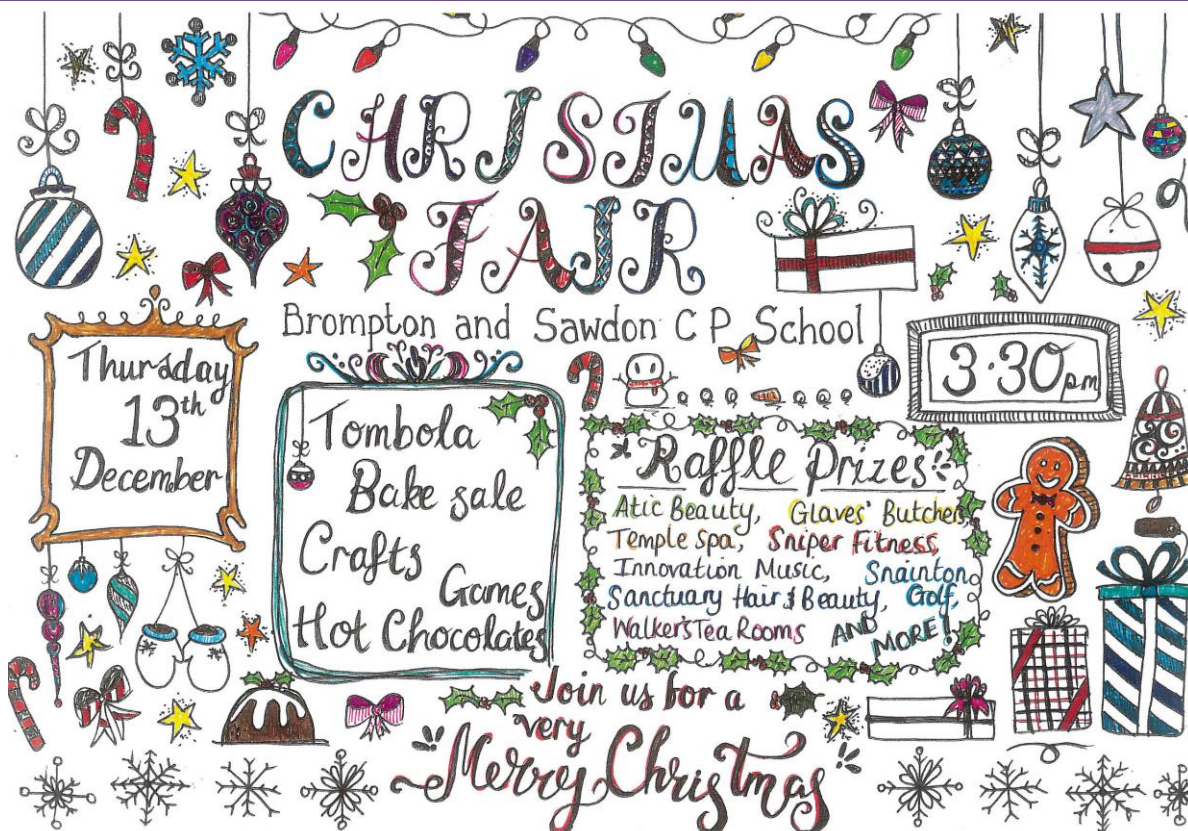 CHRISTMAS
FAIR
Brompton and Sawdon C P School
Thursday
13th
December
3.30pm
Tombola
Bake sale
Crafts
Games
Hot Chocolates
Raffle Prizes
Atic Beauty, Glaves' Butchers,
Temple Spa, Sniper Fitness,
Innovation Music, Snainton
Sanctuary Hair & Beauty, Golf,
Walker's Tea Rooms AND
MORE!
Join us for a
very
Merry Christmas